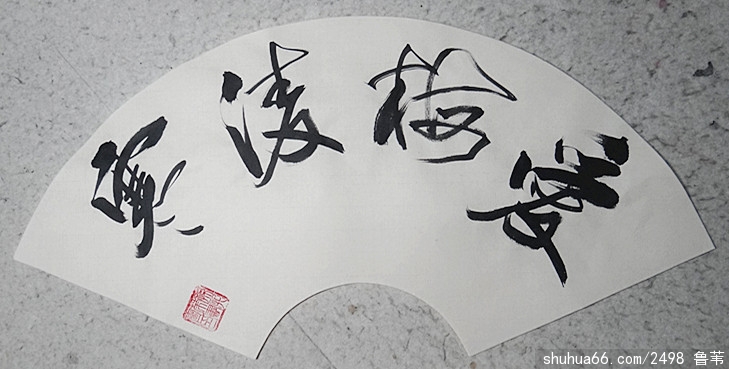 梅凌寒
shuhua66.com/2498 鲁苇